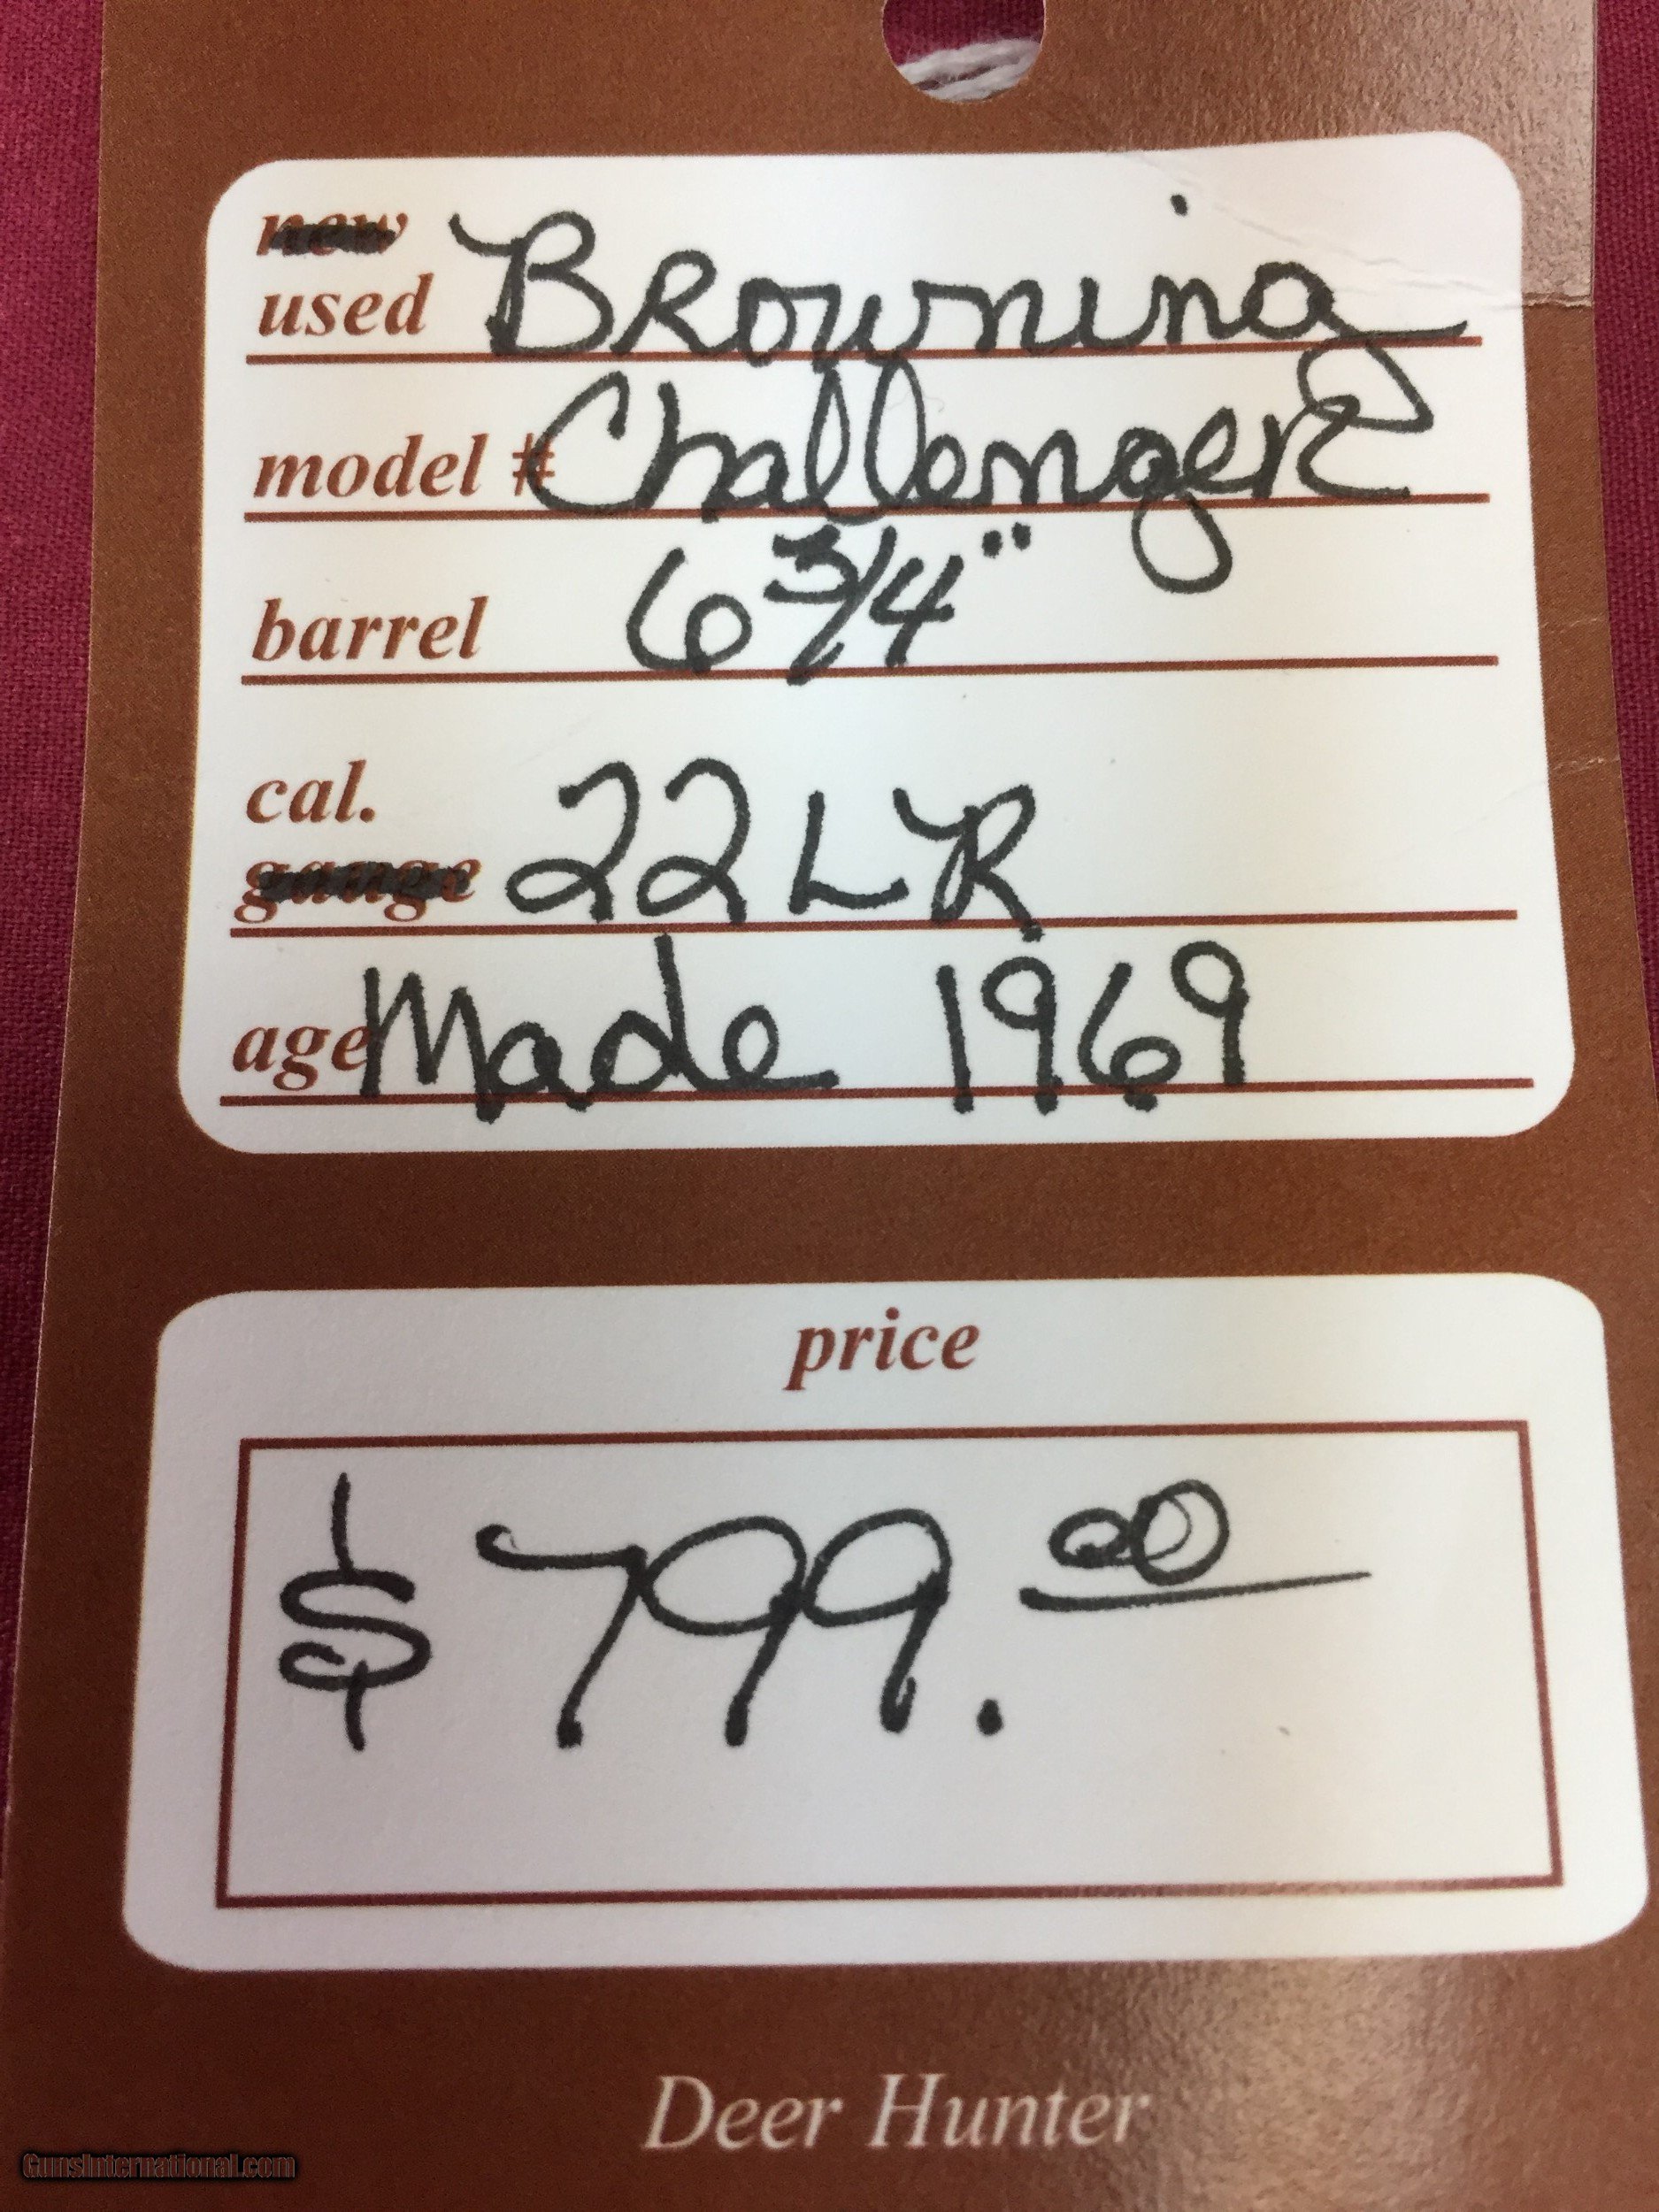 new
used Browning
model # Challenger
barrel 6 3/4"
cal.
gauge 22 LR
age Made 1969
price
$799.00
Deer Hunter
GunsInternational.com